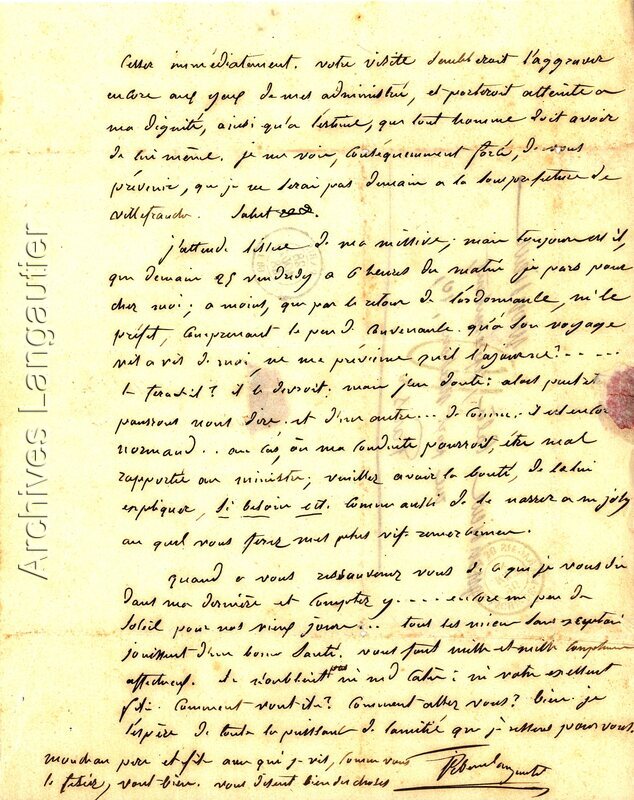 cesser immédiatement. votre visite doubleroit l'aggraver
encore aux yeux de mes administré, et porteroit atteinte a
ma dignité, ainsi qu'a l'estime, que tout homme doit avoir
de lui même. je me voir, conséquemment forcé, de vous
prévenir, que je ne serai pas demain a la sousprefecture de
villefranche. Salut
j'attends l'issue de ma missive; mais toujours est il,
que demain 25 vendredy a 6 heures du matin je pars pour
chez moi; a moins, que par le retour de l'ordonnance, mr le
préfet, comprenant le peu de convenance qu'a son voyage
vis a vis de moi, ne me prévienne qu'il l'ajourne? - - - -
le feractil? il le devroit; mais j'en doute: alors
pourrons nous dire et d'un autre ... de comme, il est encor
normand .. au cas, ou ma conduite pourroit, être mal
rapportée au ministre; veuillez avoir la bonté, de la lui
expliquer, si besoin est. comme aussi de le narrer a mr joly
au quel vous ferez mes plus vifs remerciemen.
quand a vous ressouvenez vous de ce que je vous dis
dans ma dernière et comptez y - - - - encore un peu de
soleil pour nos vieux jours ... tous les mien sans exception
jouissent d'une bonne santé. vous font mille et mille complimen
affectueux. ne n'oublient pas ni md Calré: ni votre excellent
fils. Comment vont ils? Comment allez vous? bien je
l'espère de toute la puissance de l'amitié que je ressens pour vous.
mon cher pere et fils avec qui je vis, comme vous
le savez, vont bien. vous disent bien des choses
Archives Langautier